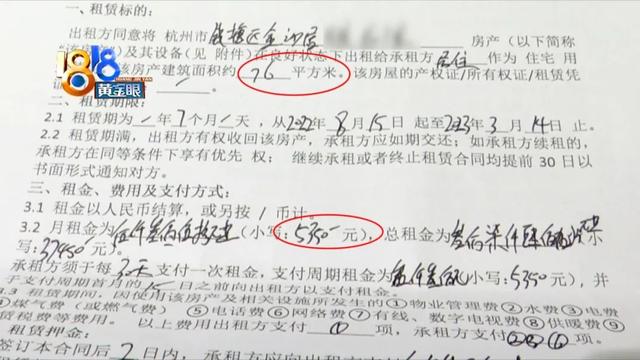 一、租赁标的：
出租方同意将 杭州市 钱塘区金沙居 房产（以下简称
“该房产”）及其设备（见 附件）在良好状态下出租给承租方 居住 作为 住宅 用
该房产建筑面积约 76 平方米。该房屋的产权证/所有权证/租赁凭
1818
黄金眼
二、租赁期限：
2.1 租赁期为 / 年 7 个月 / 天，从2022年 8 月 15 日 起至2023年 3 月 14 日 止。
2.2 租赁期满，出租方有权收回该房产，承租方应如期交还；如承租方续租的，
承租方在同等条件下享有优先 权； 继续承租或者终止租赁合同均提前 30 日以
书面形式通知对方。
三、租金、费用及支付方式：
3.1 租金以人民币结算，或另按 / 币计。
3.2 月租金为 伍仟叁佰伍拾 （小写：5350 元），总租金为 叁万柒仟肆佰
写：37450元）。
承租方须于每 3天 支付一次租金，支付周期租金为 伍仟叁佰 （小写：5350 元），并
于支付周期首月的 15 日之前向出租方以支付租金。
3.3 租赁期间，因使用该房产及相关设施所发生的①物业管理费②水费③电费
④煤气费（或燃气费） ⑤电话费⑥网络费⑦有线、数字电视费⑧供暖费⑨
赁税费等费用。 以上费用出租方支付 ① 项，承租方支付
租赁押金：
签订本合同后 2 日内，承租方应向出租方支付